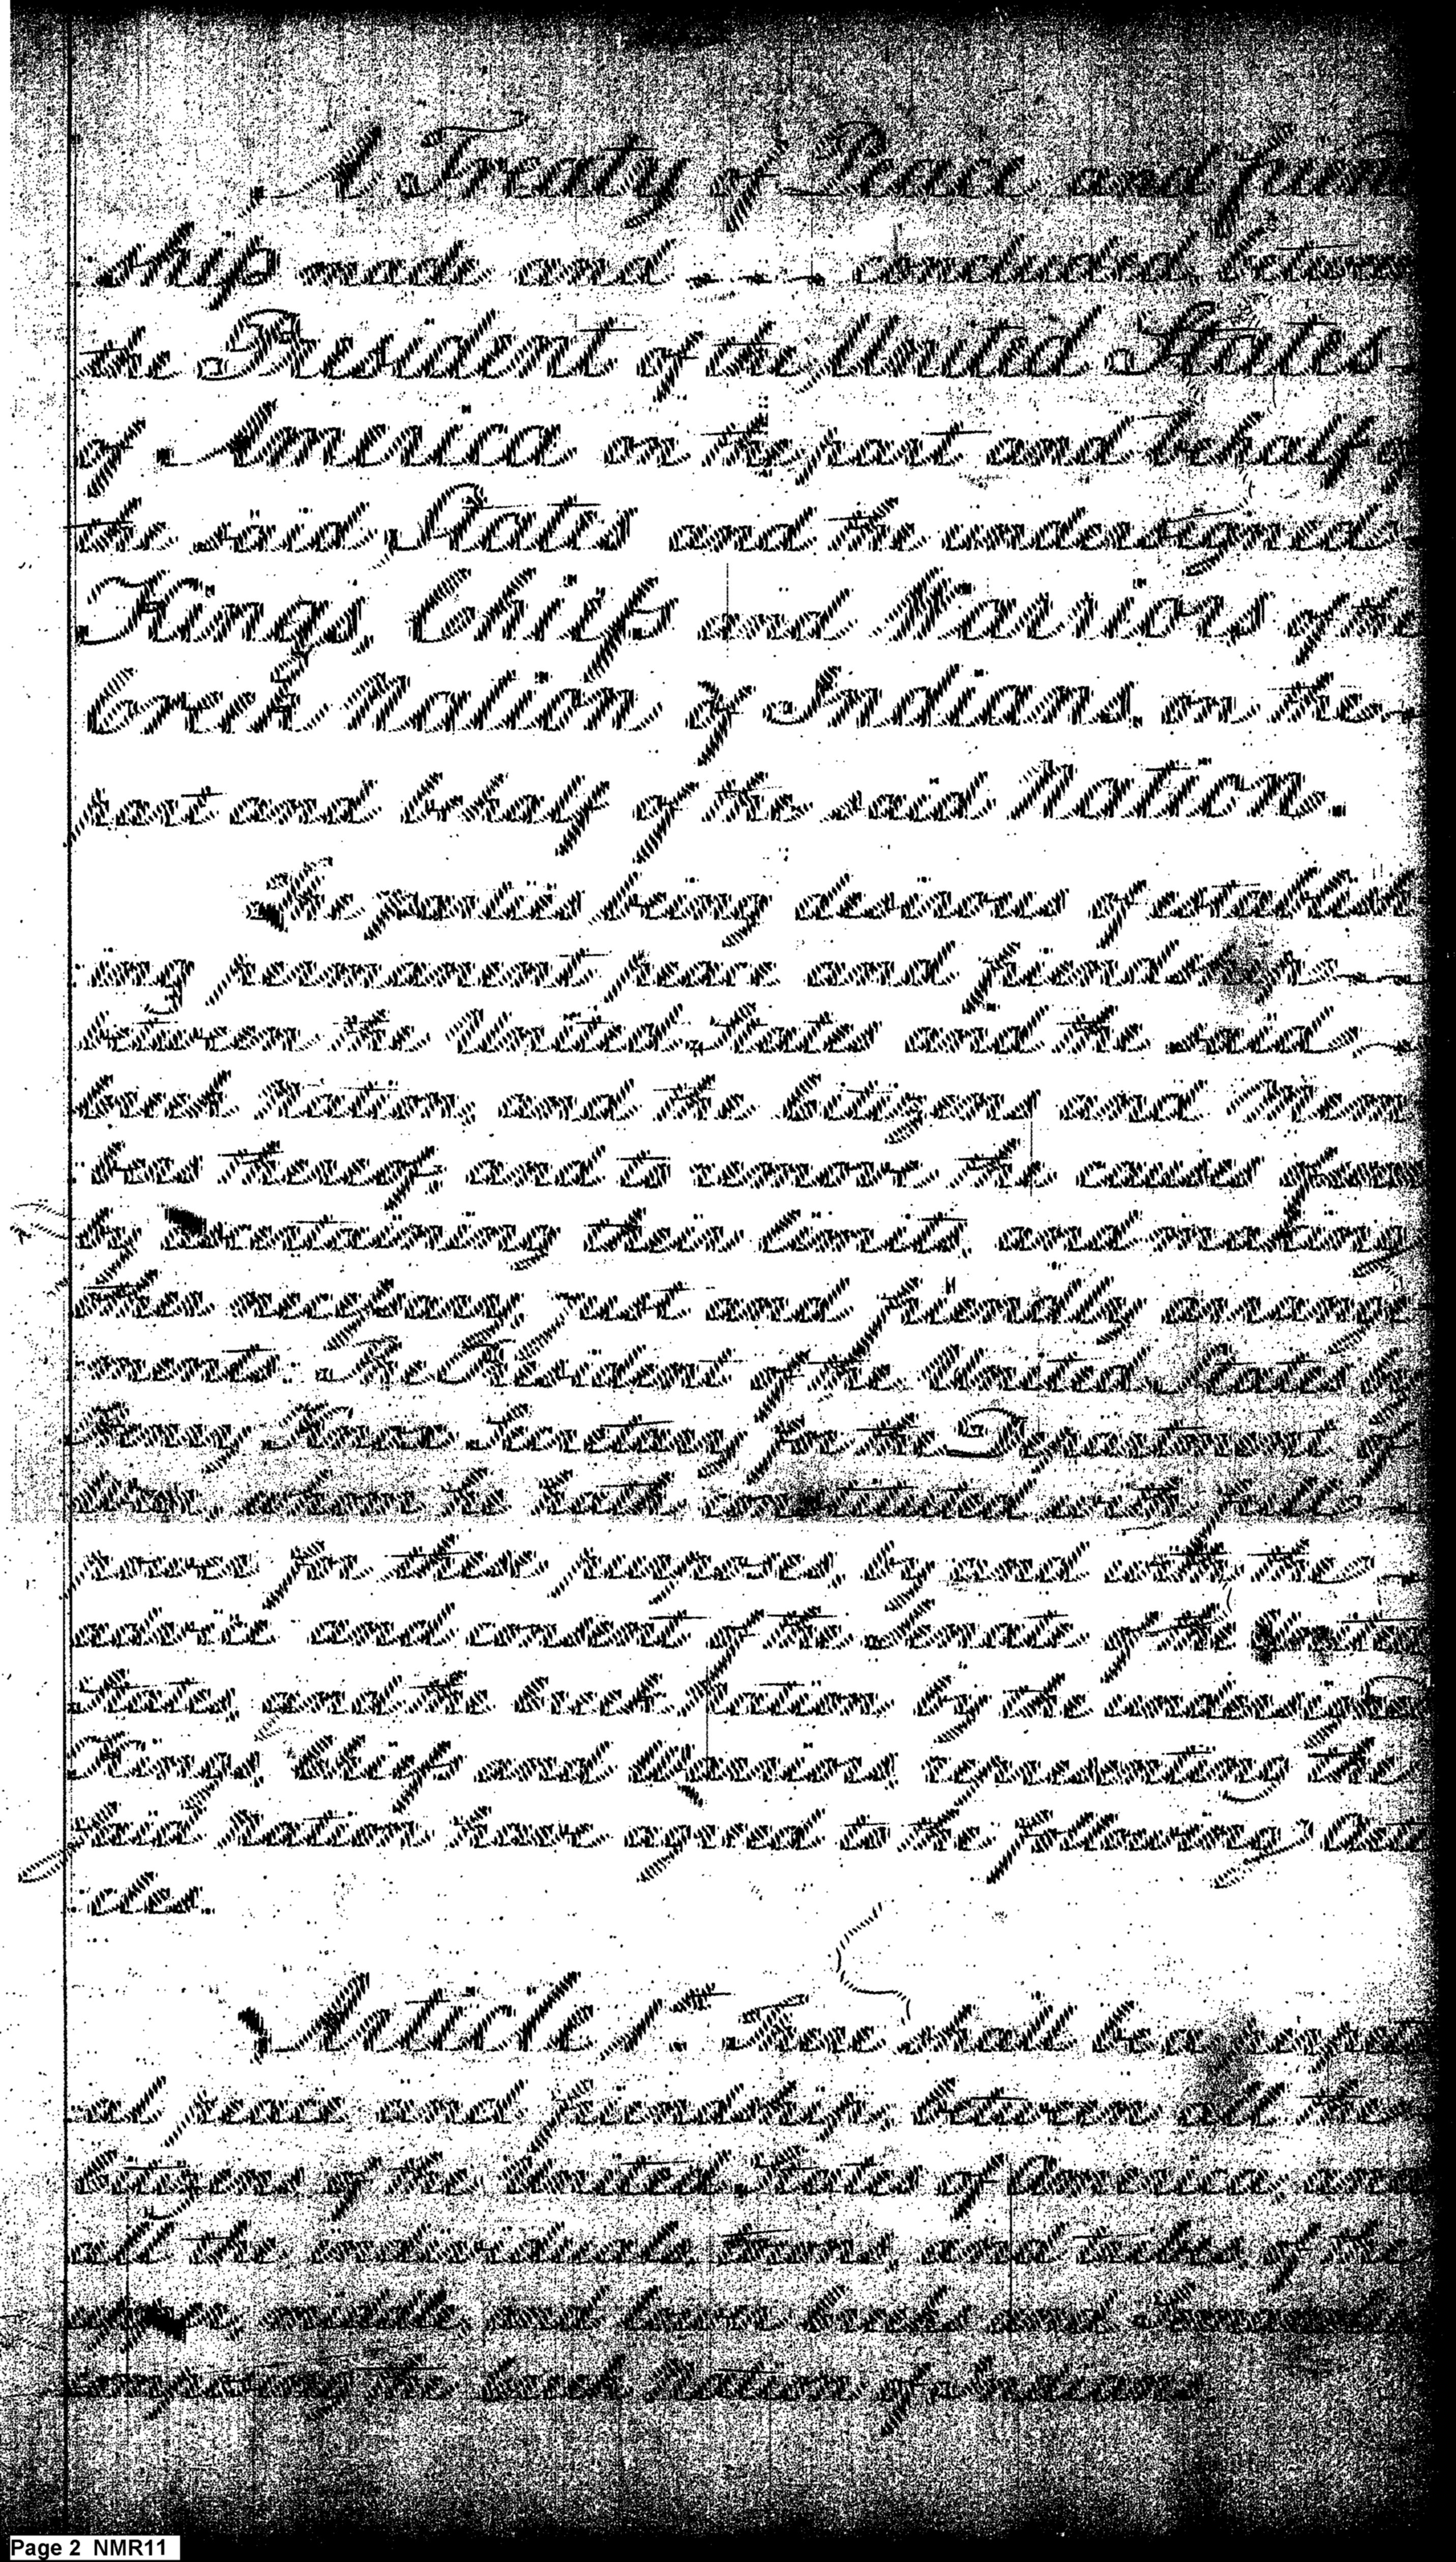 A Treaty of Peace and frien
ship made and - - - concluded, between
the President of the United States
of America on the part and behalf of
the said States and the undersigned
Kings, Chiefs and Warriors of the
Creek Nation of Indians, on the
part and behalf of the said Nation.
The parties being desirous of establish
ing permanent peace and friendship
between the United States and the said
Creek Nation, and the Citizens and Mem
bers thereof; and to remove the causes of war
by ascertaining their limits, and making
other necessary, just and friendly arrange
ments: The President of the United States, by
Henry Knox Secretary for the Department of
War, whom he hath constituted with full
powers for these purposes, by and with the
advice and consent of the Senate of the United
States, and the Creek Nation, by the undersigned
Kings, Chiefs and Warriors, representing the
said Nation have agreed to the following Arti
cles.
Article 1st. There shall be a perpetu
al peace and friendship between all the
Citizens of the United States of America, and
all the individuals, towns, and tribes of the
upper, middle, and lower Creeks and Semanolies
composing the Creek Nation of Indians.
Page 2 NMR11